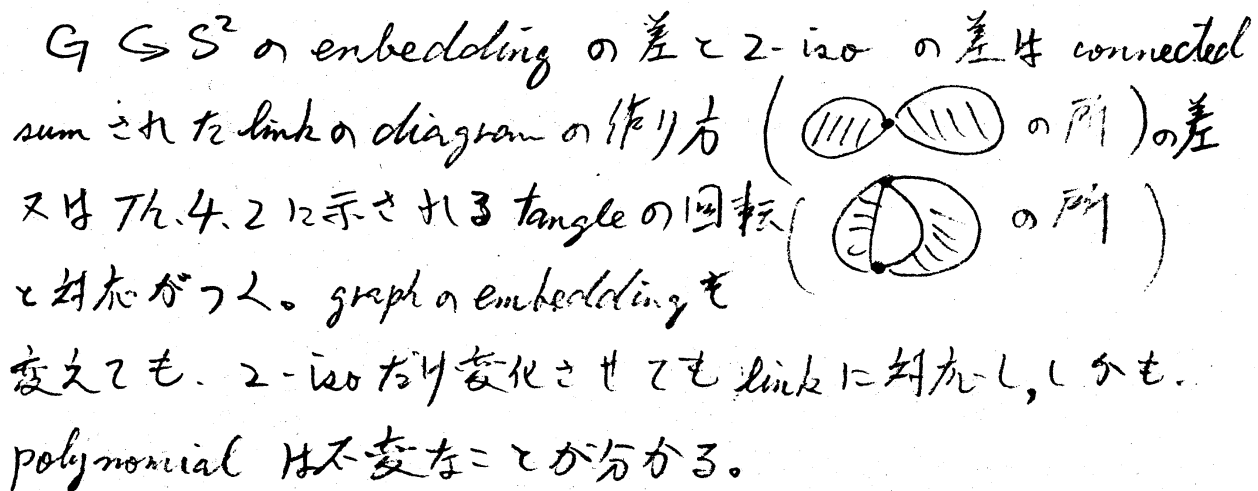 G ↪ S² の enbedding の差と 2-iso の差は connected
sum された link の diagram の作り方 ( の所 ) の差
又は Th.4.2 に示される tangle の回転 ( の所 )
と対応がつく。graph の embedding を
変えても、2-iso だけ変化させても link に対応し, しかも、
polynomial は不変なことが分かる。